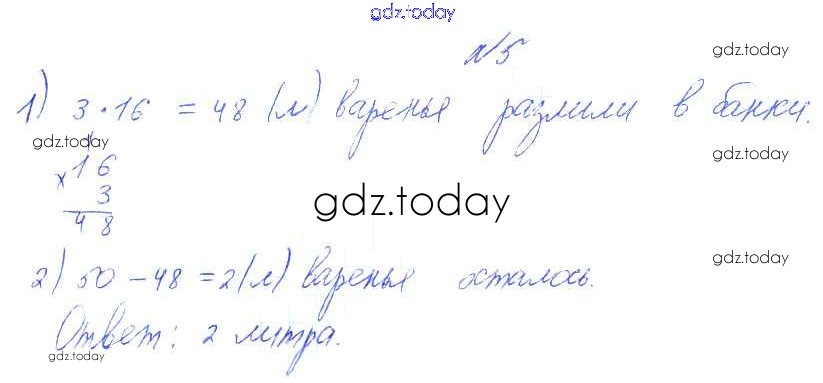 gdz.today
№5
gdz.today
1) 3 · 16 = 48 (л) варенья разлили в банки.
gdz.today
gdz.today
1
× 16
3
48
gdz.today
2) 50 – 48 = 2 (л) варенья осталось.
gdz.today
Ответ: 2 литра.
gdz.today
gdz.today